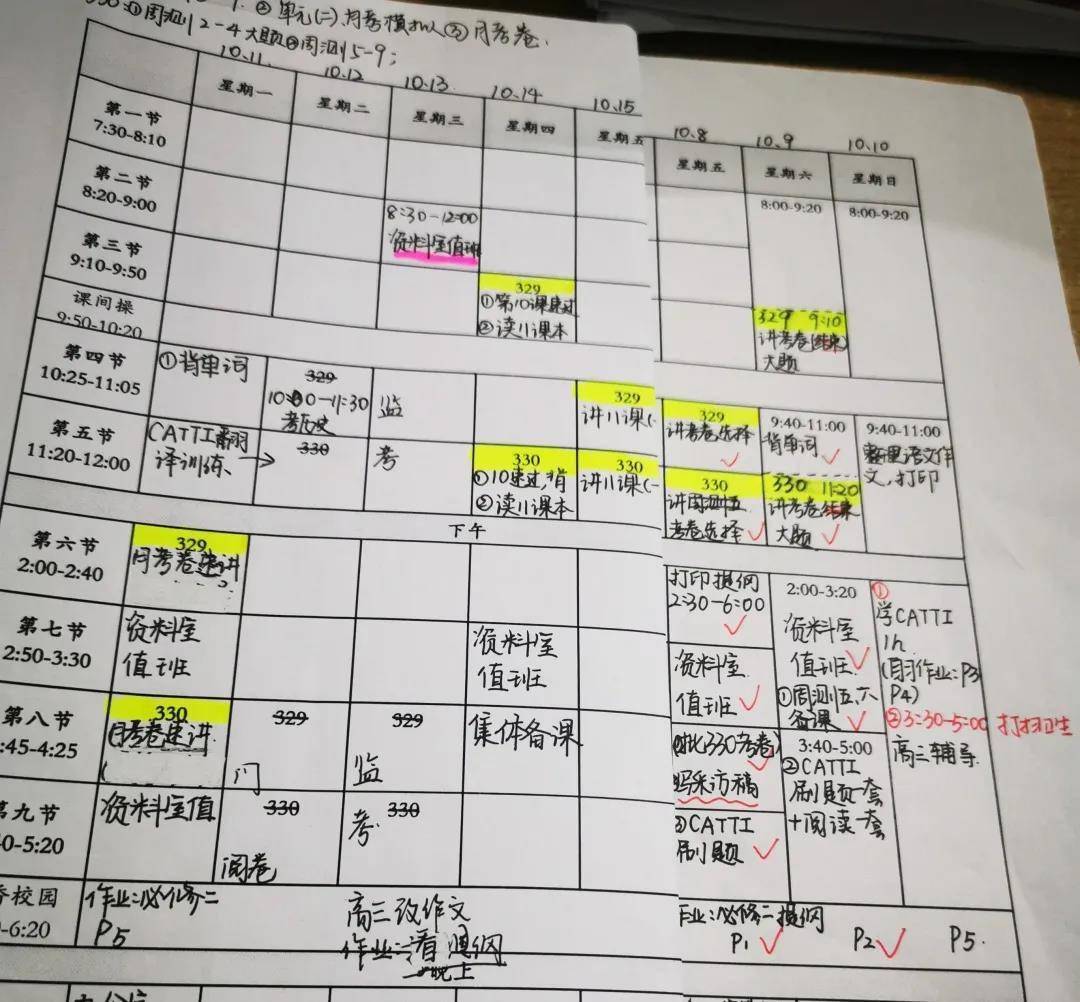 330:①周测2-4大题②周测5-9;
②单元(二)、月考模拟③月考卷.
10.11 10.12 10.13 10.14 10.15
星期一 星期二 星期三 星期四 星期五
第一节
7:30-8:10
第二节
8:20-9:00
8:30-12:00
资料室值班
第三节
9:10-9:50
329
①第10课速过
②读11课本
课间操
9:50-10:20
第四节
10:25-11:05
①背单词
329
10:00-11:30
考历史
监
329
讲11课(
第五节
11:20-12:00
CATTI翻
译训练
330
考
330
①10速过,背
②读11课本
330
讲11课(
下午
第六节
2:00-2:40
329
月考卷速讲
第七节
2:50-3:30
资料室
值班
资料室
值班
第八节
:45-4:25
330
月考卷速讲
329
329
监
集体备课
第九节
0-5:20
资料室值
330
阅卷
330
考
校园
-6:20
作业:必修二
P5
高三改作文
作业:看提纲
晚上
10.8 10.9 10.10
星期五 星期六 星期日
8:00-9:20 8:00-9:20
329 9:10
讲考卷(结束)
大题
329
讲考卷选择
9:40-11:00
背单词
9:40-11:00
整理语文作
文,打印
330
讲周测五
考卷选择
330 11:20
讲考卷结束
大题
打印提纲
2:30-6:00
2:00-3:20
资料室
值班
①周测五、六
备课
①
学CATTI
1h
(自习作业:P3
P4)
②3:30-5:00 打扫卫生
高三辅导
资料室
值班
330考卷)
采访稿
3:40-5:00
②CATTI
刷题一套
+阅读一套
③CATTI
刷题
作业:必修二提纲
P1 P2 P5.